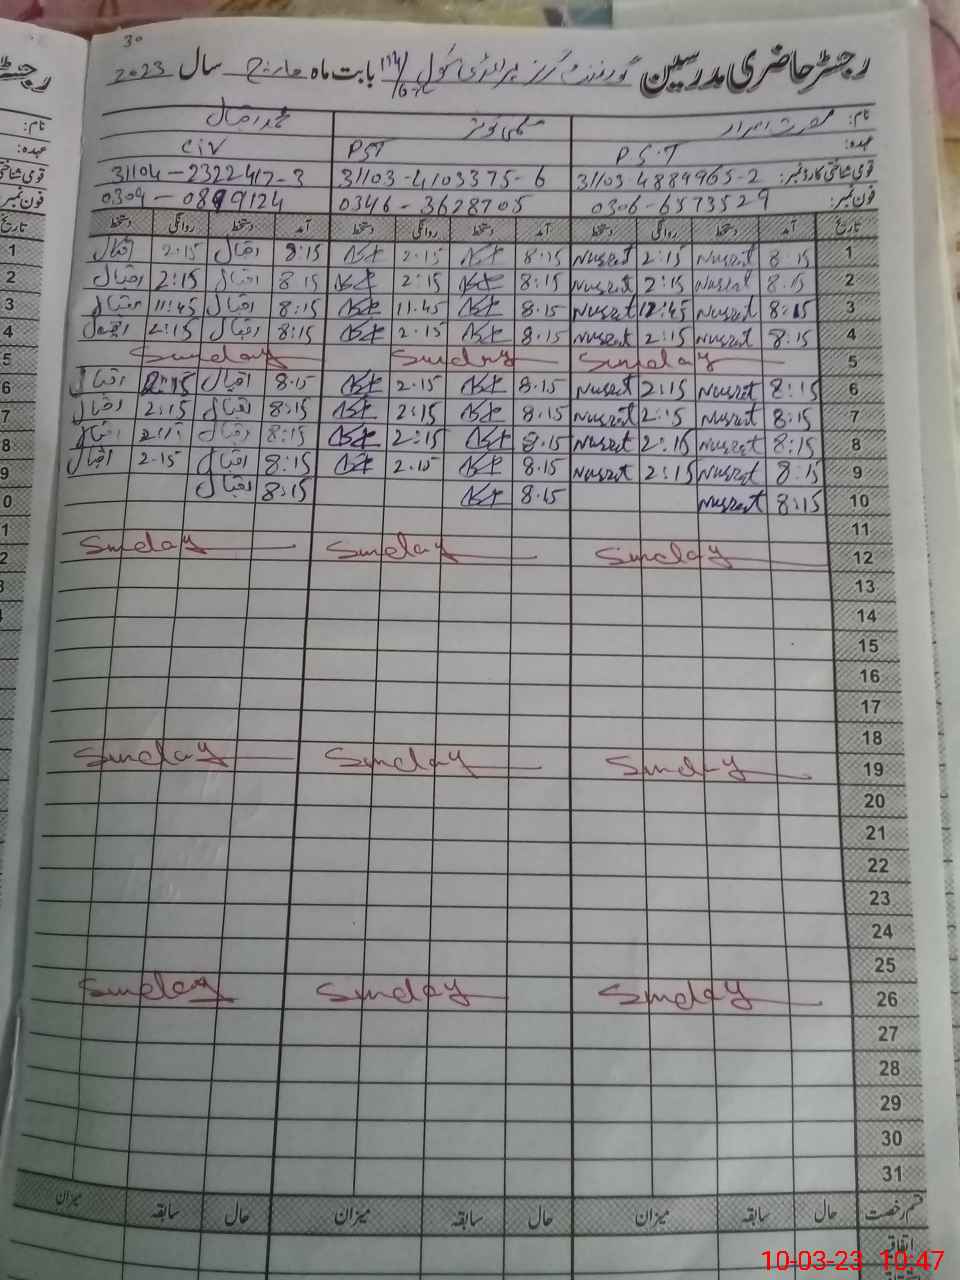 30
رجسٹر حاضری مدرسین گورنمنٹ گرلز پرائمری سکول بابت ماہ مارچ سال 2023
نام: نصرت اسرار سلمی کوثر محمد اقبال
عہدہ: P.S.T PST C.IV
قومی شناختی کارڈ نمبر: 31103 4889965-2 31103-4103375-6 31104-2322417-3
فون نمبر: 0306-6573529 0346-3628705 0304-0899124
تاریخ آمد دستخط روانگی دستخط آمد دستخط روانگی دستخط آمد دستخط روانگی دستخط
1 8:15 Nusrat 2:15 Nusrat 8.15 2.15 8:15 اقبال 2.15 اقبال
2 8.15 Nusrat 2:15 Nusrat 8:15 2:15 8 15 اقبال 2:15 اقبال
3 8:15 Nusrat 12:45 Nusrat 8.15 11.45 8:15 اقبال 11:45 اقبال
4 8:15 Nusrat 2:15 Nusrat 8.15 2.15 8:15 اقبال 2:15 اقبال
5 Sunday Sunday Sunday
6 8:15 Nusrat 2:15 Nusrat 8.15 2.15 8.15 اقبال 2:15 اقبال
7 8:15 Nusrat 2:15 Nusrat 8.15 2:15 8:15 اقبال 2:15 اقبال
8 8:15 Nusrat 2:15 Nusrat 8.15 2:15 8:15 اقبال 2:15 اقبال
9 8:15 Nusrat 2:15 Nusrat 8.15 2.15 8:15 اقبال 2.15 اقبال
10 8:15 Nusrat 8.15 8:15 اقبال
11
12 Sunday Sunday Sunday
13
14
15
16
17
18
19 Sunday Sunday Sunday
20
21
22
23
24
25
26 Sunday Sunday Sunday
27
28
29
30
31
قسم رخصت حال سابقہ میزان حال سابقہ میزان حال سابقہ میزان
اتفاقیہ
10-03-23 10:47